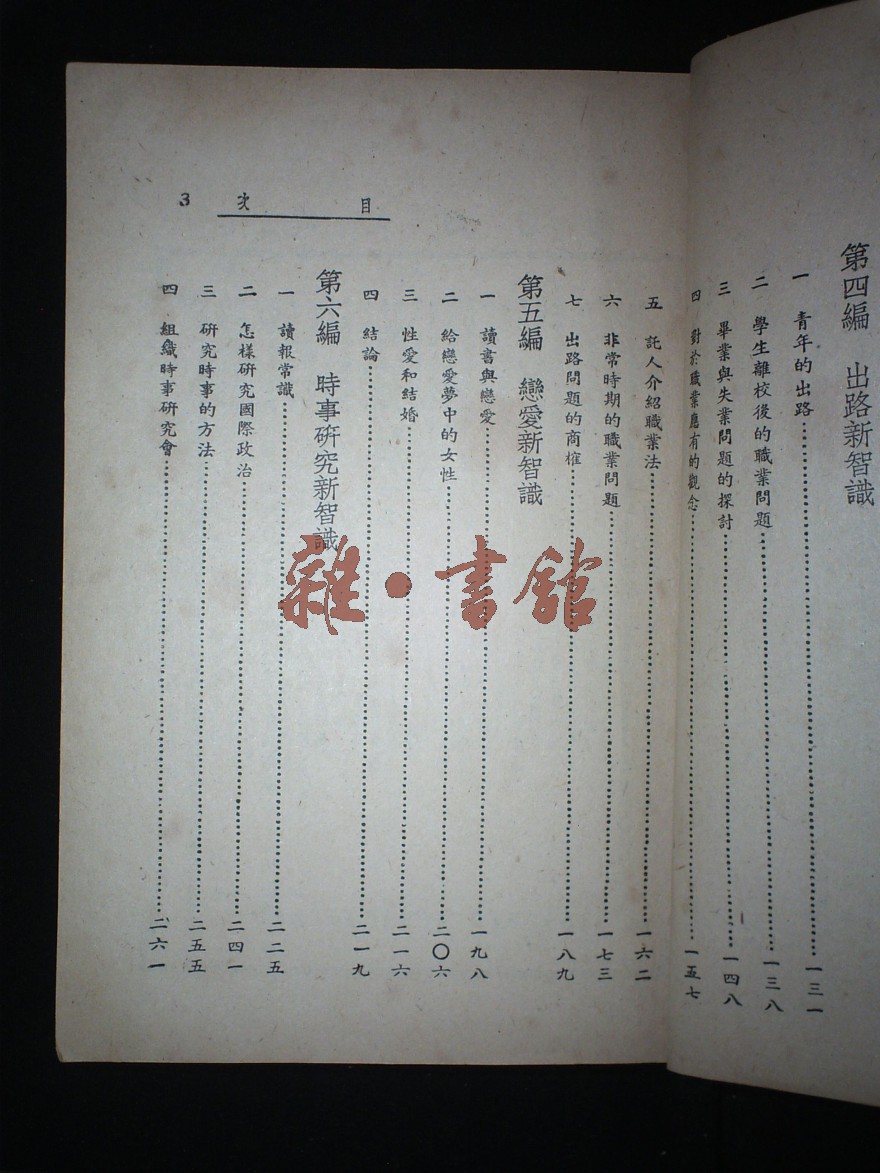 第四編 出路新智識
一 青年的出路……一三一
二 學生離校後的職業問題……一三八
三 畢業與失業問題的探討……一四八
四 對於職業應有的觀念……一五七
目次 3
五 託人介紹職業法……一六二
六 非常時期的職業問題……一七三
七 出路問題的商榷……一八九
第五編 戀愛新智識
一 讀書與戀愛……一九八
二 給戀愛夢中的女性……二〇六
三 性愛和結婚……二一六
四 結論……二一九
第六編 時事研究新智識
一 讀報常識……二二五
二 怎樣研究國際政治……二四一
三 研究時事的方法……二五五
四 組織時事研究會……二六一
雜·書館